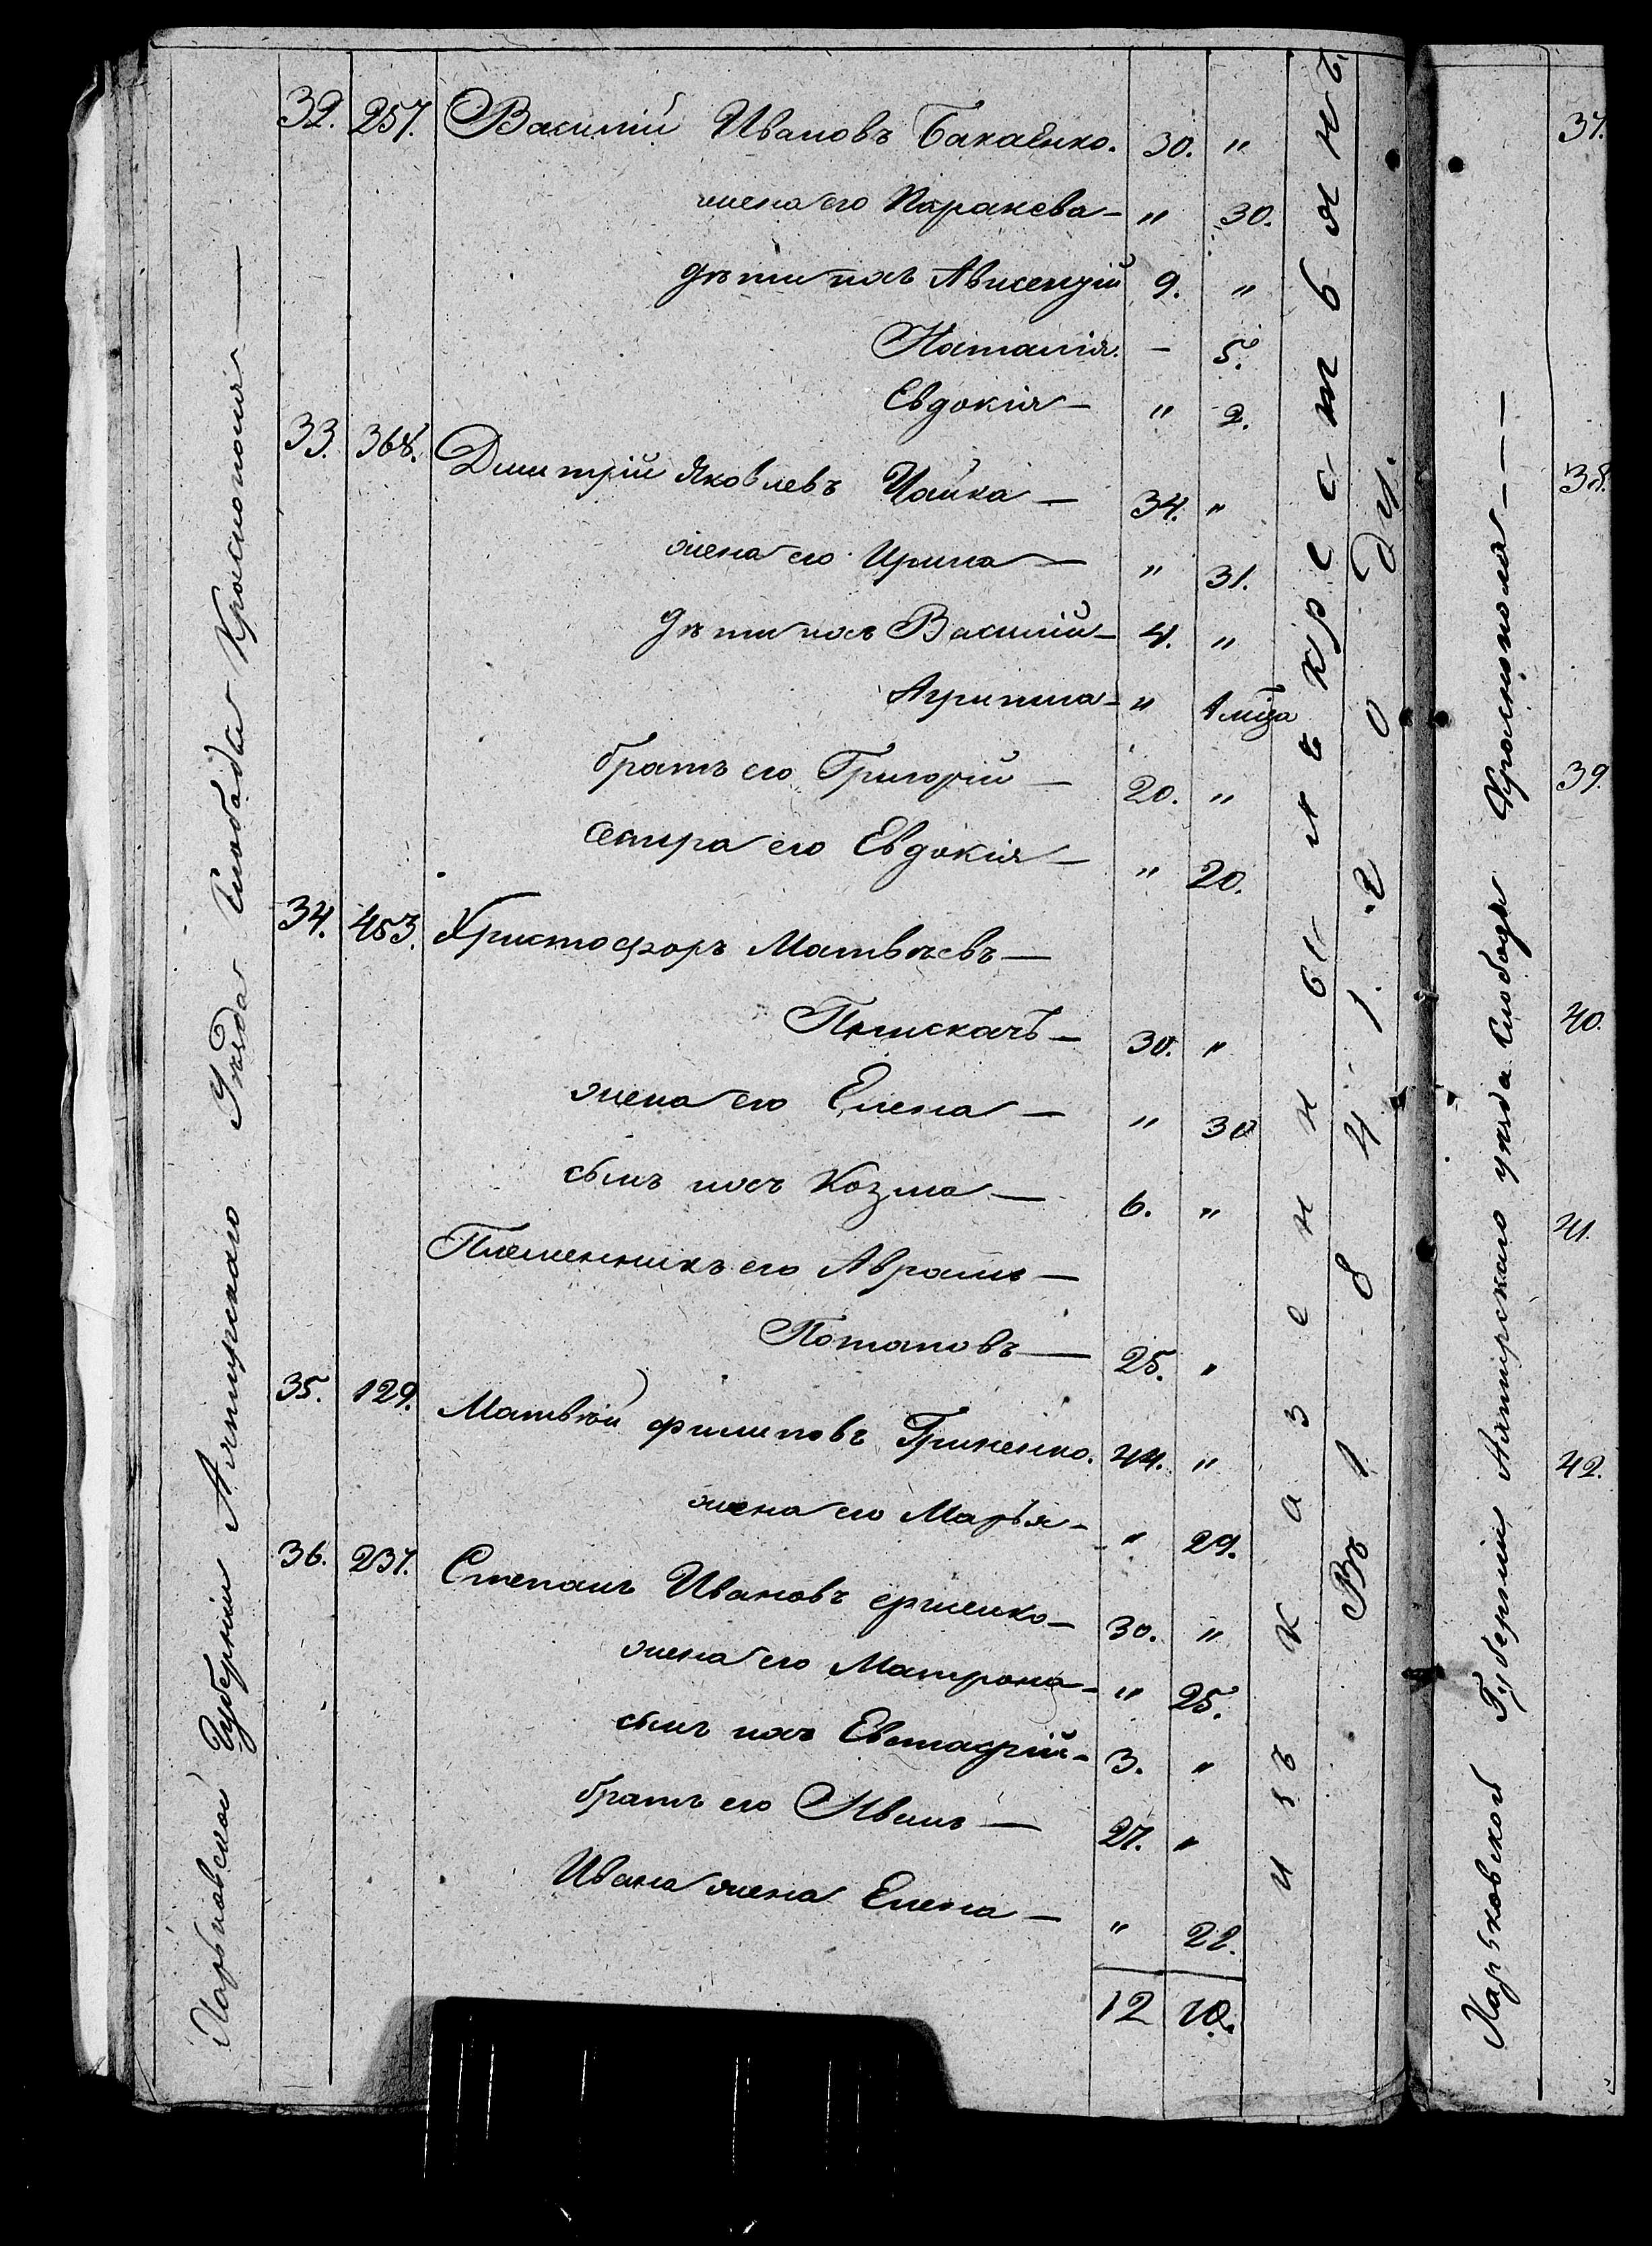 Харьковской Губерніи Ахтырскаго Уѣзда Слободы Краснополя —
32. 257. Василій Ивановъ Бакаенко. 30. "
жена его Параскева — " 30.
дѣти ихъ Авксентій 9. "
Наталія. — 5.
Евдокія — " 2.
33. 368. Дмитрій Яковлевъ Чайка — 34. "
жена его Ирина — " 31.
дѣти ихъ Василій — 4. "
Агрипина — " 1 мѣца
братъ его Григорій — 20. "
сестра его Евдокія — " 20.
34. 453. Христофоръ Матвѣевъ —
30. "
жена его Елена — " 30
сынъ ихъ Козма — 6. "
Племенникъ его Аврамъ —
Потаповъ — 25. "
35. 129. Матвѣй Филиповъ Гриненко. 44. "
жена его Марья — " 29.
36. 237. Степанъ Ивановъ — 30. "
жена его Матрона — " 25.
сынъ ихъ Евстафій — 3. "
братъ его Иванъ — 27. "
Ивана жена Елена — " 22.
12 10.
изъ казенныхъ крестьянъ.
Въ 1841.2 оду.
Харьковской Губерніи Ахтырскаго уѣзда Слободы Краснополя — — —
37.
38.
39.
40.
41.
42.